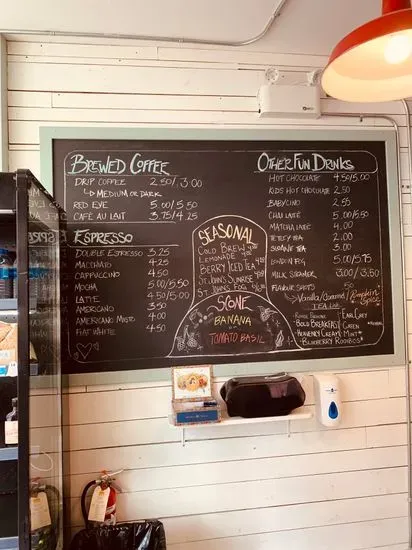 BREWED COFFEE
DRIP COFFEE 2.50/3.00
↳ MEDIUM OR DARK
RED EYE 5.00/5.50
CAFÉ AU LAIT 3.75/4.25
ESPRESSO
DOUBLE ESPRESSO 3.25
MACCHIATO 4.25
CAPPUCCINO 4.50
MOCHA 5.00/5.50
LATTE 4.50/5.00
AMERICANO 3.50
AMERICANO MISTO 4.00
FLAT WHITE 4.50
SEASONAL
COLD BREW
LEMONADE
BERRY ICED TEA
ST. JOHNS SUNRISE
ST. JOHNS FOG
SCONE
BANANA
OR
TOMATO BASIL
OTHER FUN DRINKS
HOT CHOCOLATE 4.50/5.00
KIDS HOT CHOCOLATE 2.50
BABYCINO 2.55
CHAI LATTE 5.00/5.50
MATCHA LATTE
TETLEY TEA 2.00
SLOANE TEA 3.00
LONDON FOG 5.00/5.75
MILK STEAMER 3.00/3.50
FLAVOUR SHOTS .50
↳ Vanilla/Caramel/Pumpkin Spice
TEA LIST
BOLD BREAKFAST
HEAVENLY CREAM
BLUEBERRY ROOIBOS
EARL GREY
GREEN
MINT